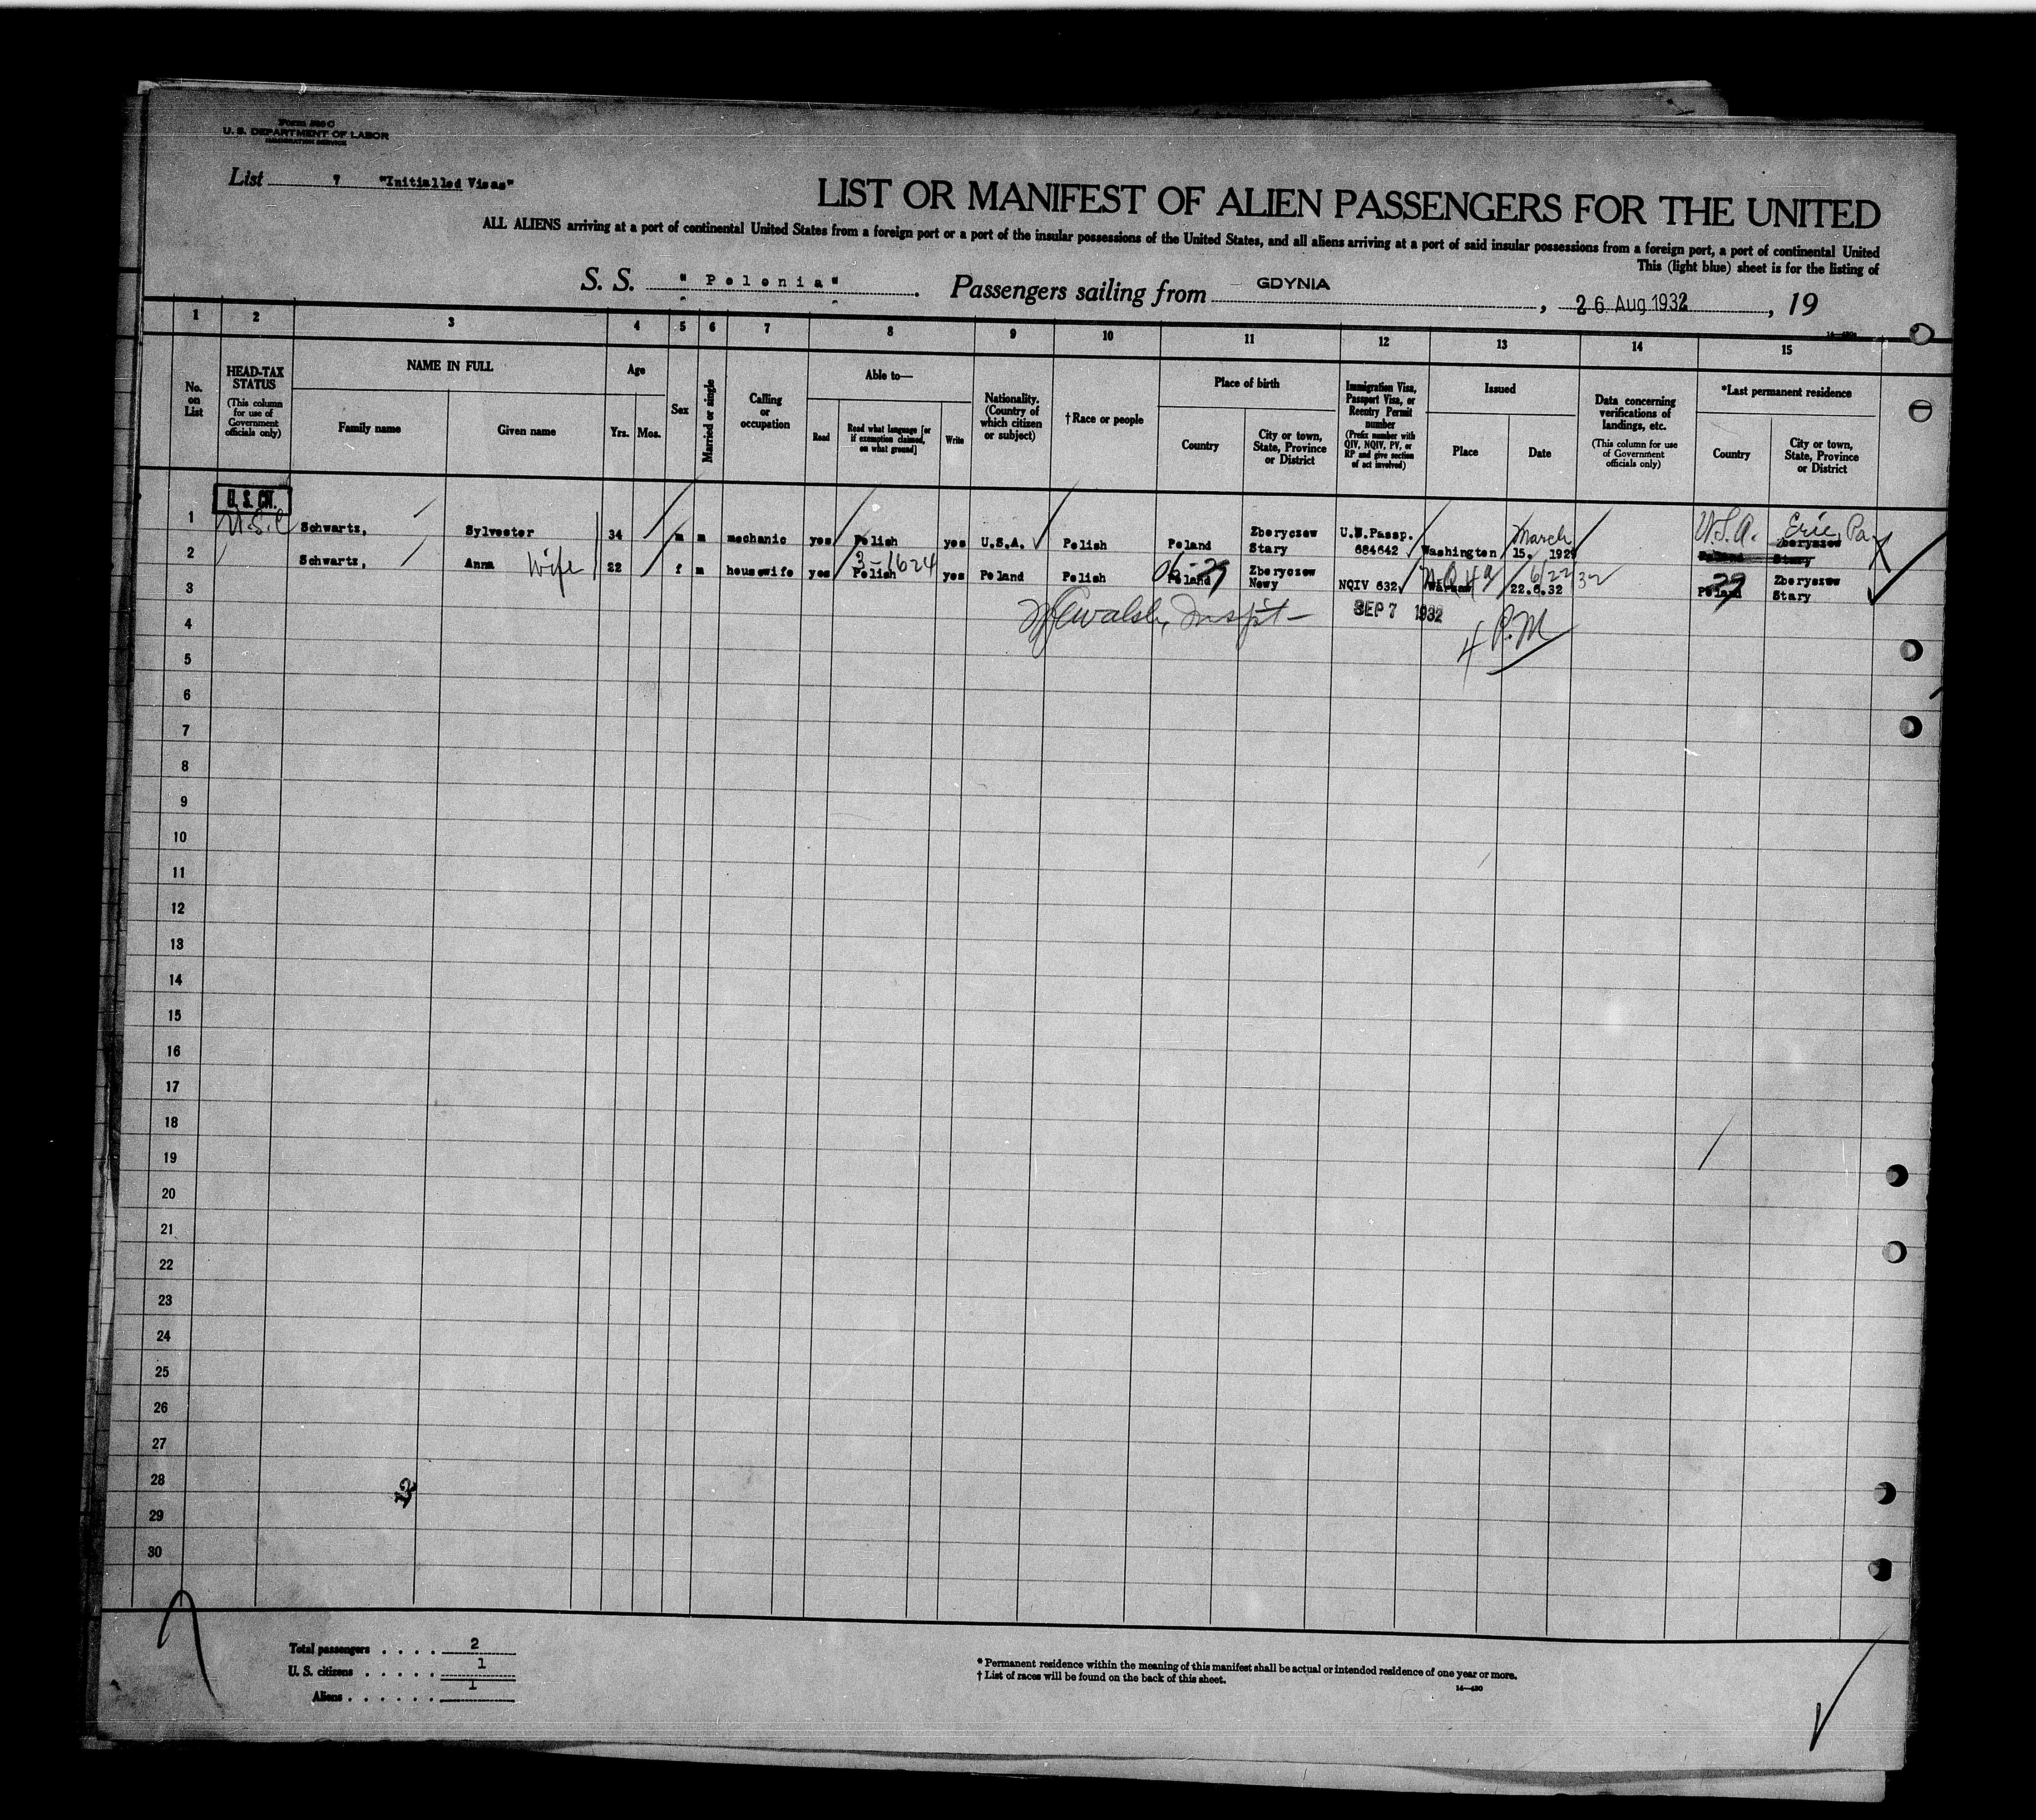 Form 500 C
U. S. DEPARTMENT OF LABOR
IMMIGRATION SERVICE
List 7 "Initialled Visas"
LIST OR MANIFEST OF ALIEN PASSENGERS FOR THE UNITED
ALL ALIENS arriving at a port of continental United States from a foreign port or a port of the insular possessions of the United States, and all aliens arriving at a port of said insular possessions from a foreign port, a port of continental United
This (light blue) sheet is for the listing of
S. S. "Polonia". Passengers sailing from GDYNIA, 26 Aug 1932, 19
1 2 3 4 5 6 7 8 9 10 11 12 13 14 15
No. on List
HEAD-TAX STATUS
(This column for use of Government officials only)
NAME IN FULL
Family name
Given name
Age
Yrs. Mos.
Sex
Married or single
Calling or occupation
Able to—
Read
Read what language [or if exemption claimed, on what ground]
Write
Nationality. (Country of which citizen or subject)
†Race or people
Place of birth
Country
City or town, State, Province or District
Immigration Visa, Passport Visa, or Reentry Permit number
(Prefix number with QIV, NQIV, PV, or RP and give section of act involved)
Issued
Place
Date
Data concerning verifications of landings, etc.
(This column for use of Government officials only)
*Last permanent residence
Country
City or town, State, Province or District
U. S. CIT.
1 U.S.C Schwartz, Sylvester 34 m m mechanic yes Polish yes U.S.A. Polish Poland Zberyczew Stary U.S.Passp. 684642 Washington March 15. 1929 U.S.A. Erie, Pa
Poland Zberyszew Stary
2 Schwartz, Anna Wife 22 f m housewife yes 3-1624 Polish yes Poland Polish Poland Zberyczew Nowy NQIV 632 Warsaw 22.6.32 6/22 32 Poland Zberyszew Stary
3
Walsh, Inspt- SEP 7 1932
4 P.M
4
5
6
7
8
9
10
11
12
13
14
15
16
17
18
19
20
21
22
23
24
25
26
27
28
29
30
Total passengers . . . . 2
U. S. citizens . . . . . 1
Aliens . . . . . . 1
* Permanent residence within the meaning of this manifest shall be actual or intended residence of one year or more.
† List of races will be found on the back of this sheet.
14—430